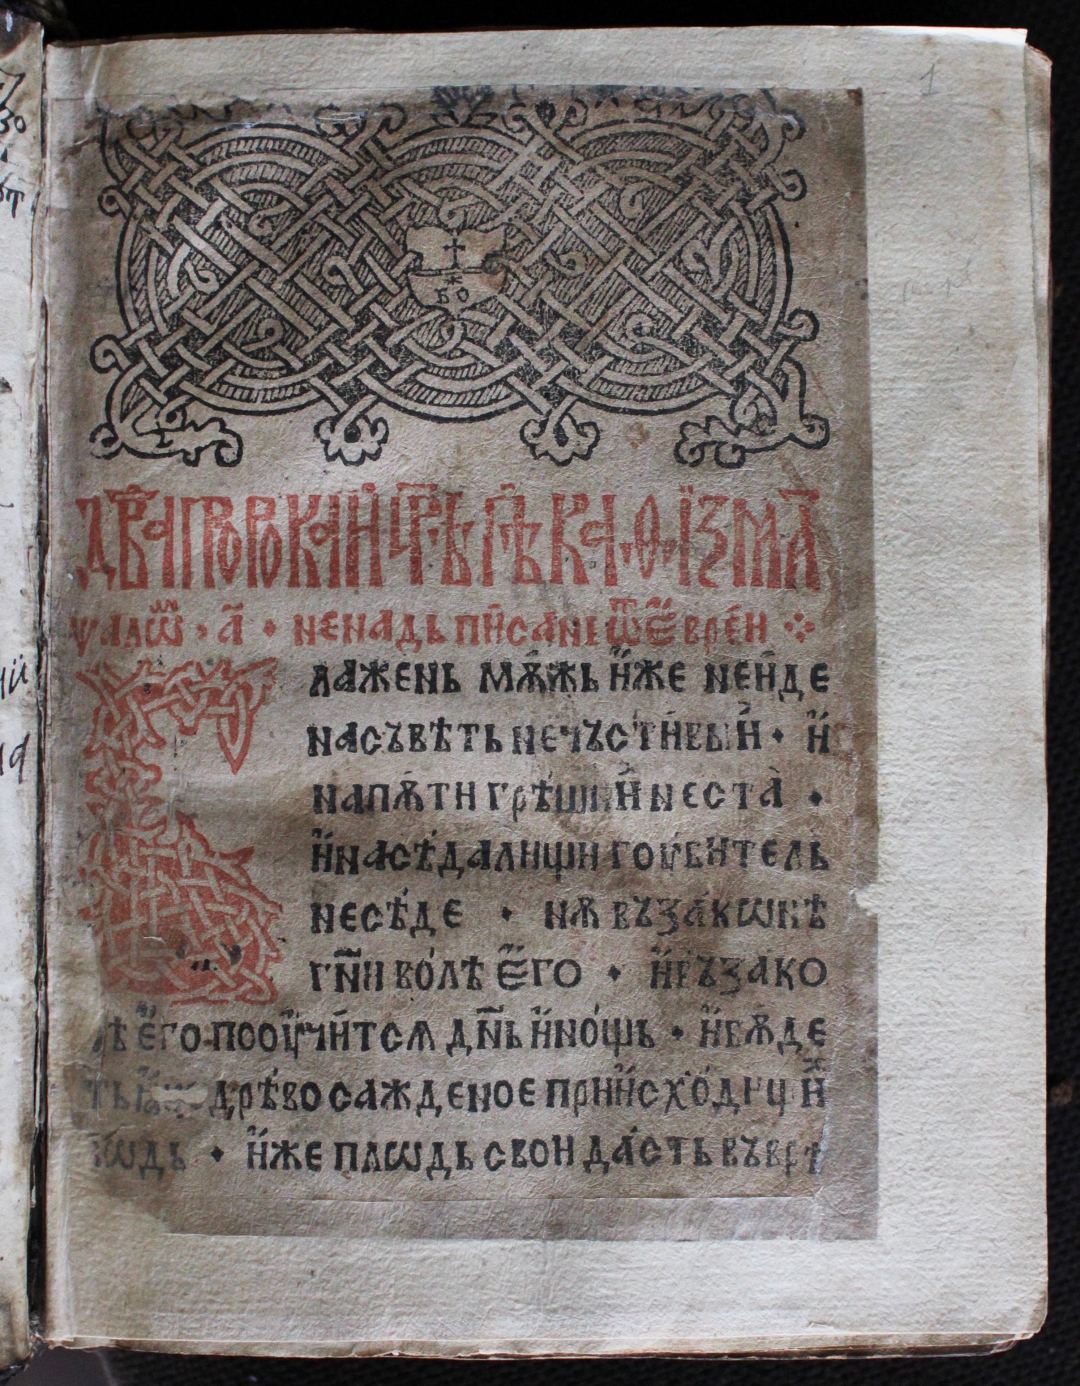 1
БО
Дв҃а про́рока и҆ цр҃ѣ пѣ́ ка.ѳ.і́зма а҃
ѱалѡ́м · а҃ · не надьпи́сань ѿ є҆вре́и
лажень мѫжь и҆́же не и́де
на съвѣть нечъсти́выи҆ · и҆
на пѫти грѣшни́и не ста̀ ·
и҆ на сѣ́далищи гоу́битель
не сѣ́де · нѫ въ зако́нѣ
гн҃и во́лѣ є҆го · и҆ въ зако
є҆го поꙋчи́тсѧ дн҃ь и҆ но́щь · и҆ бѫде
дрѣ́во сажденое при и҆схо́дищи
водь · и҆́же плѡдь свои да́сть въ врѣ